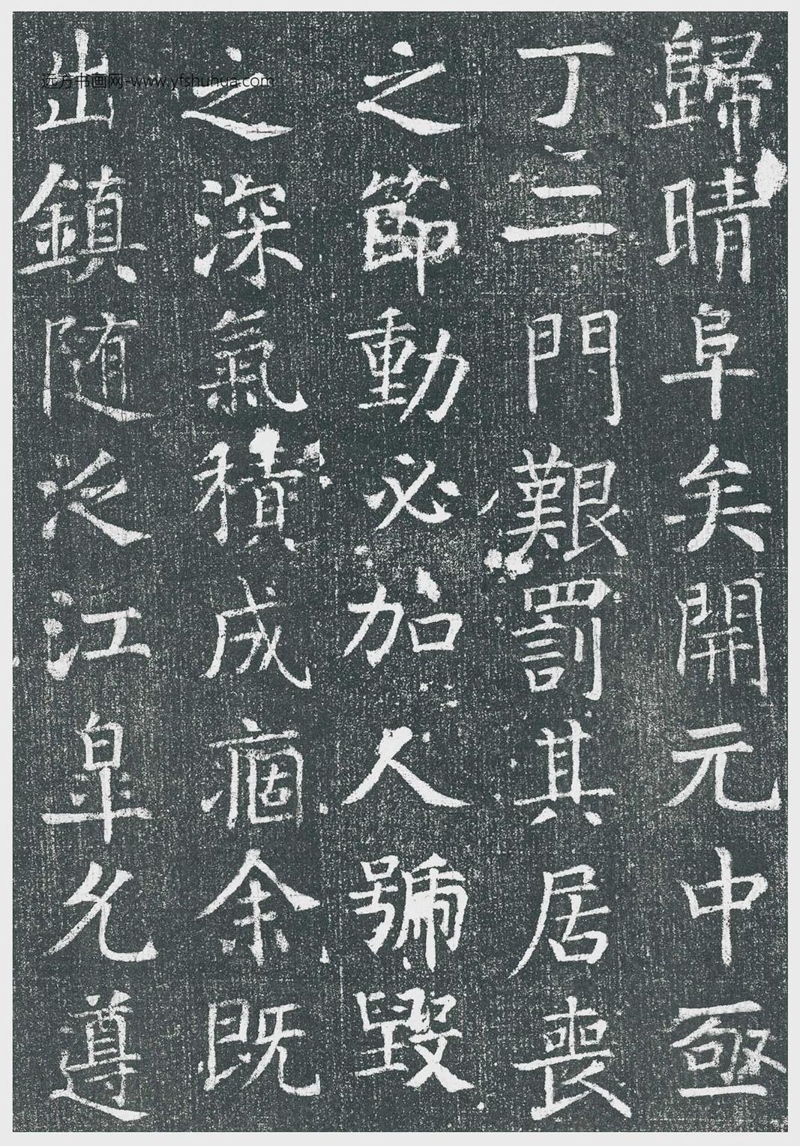 歸晴阜矣開元中亟
丁二門艱罰其居喪
之節動必加人號毀
之深氣積成痼余既
出鎮随泛江皐允遵
远方书画网-www.yfshuhua.com